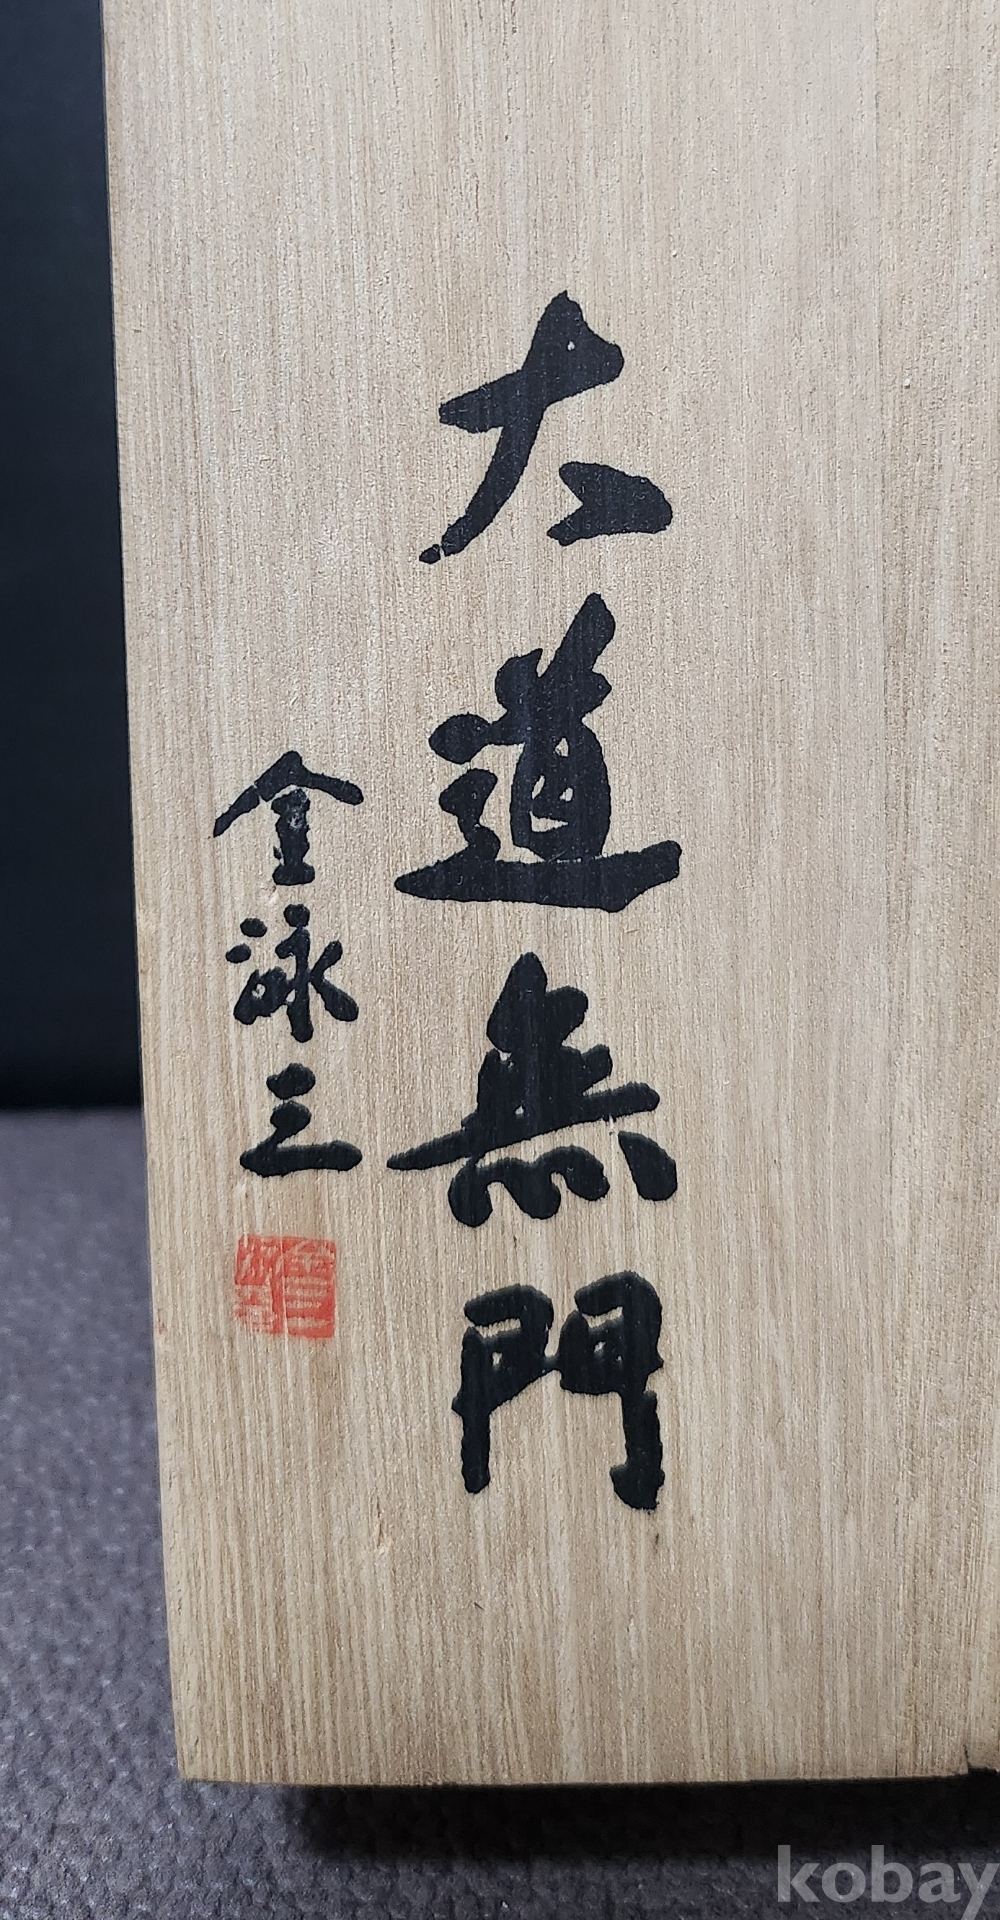 大道無門
金詠三
kobay